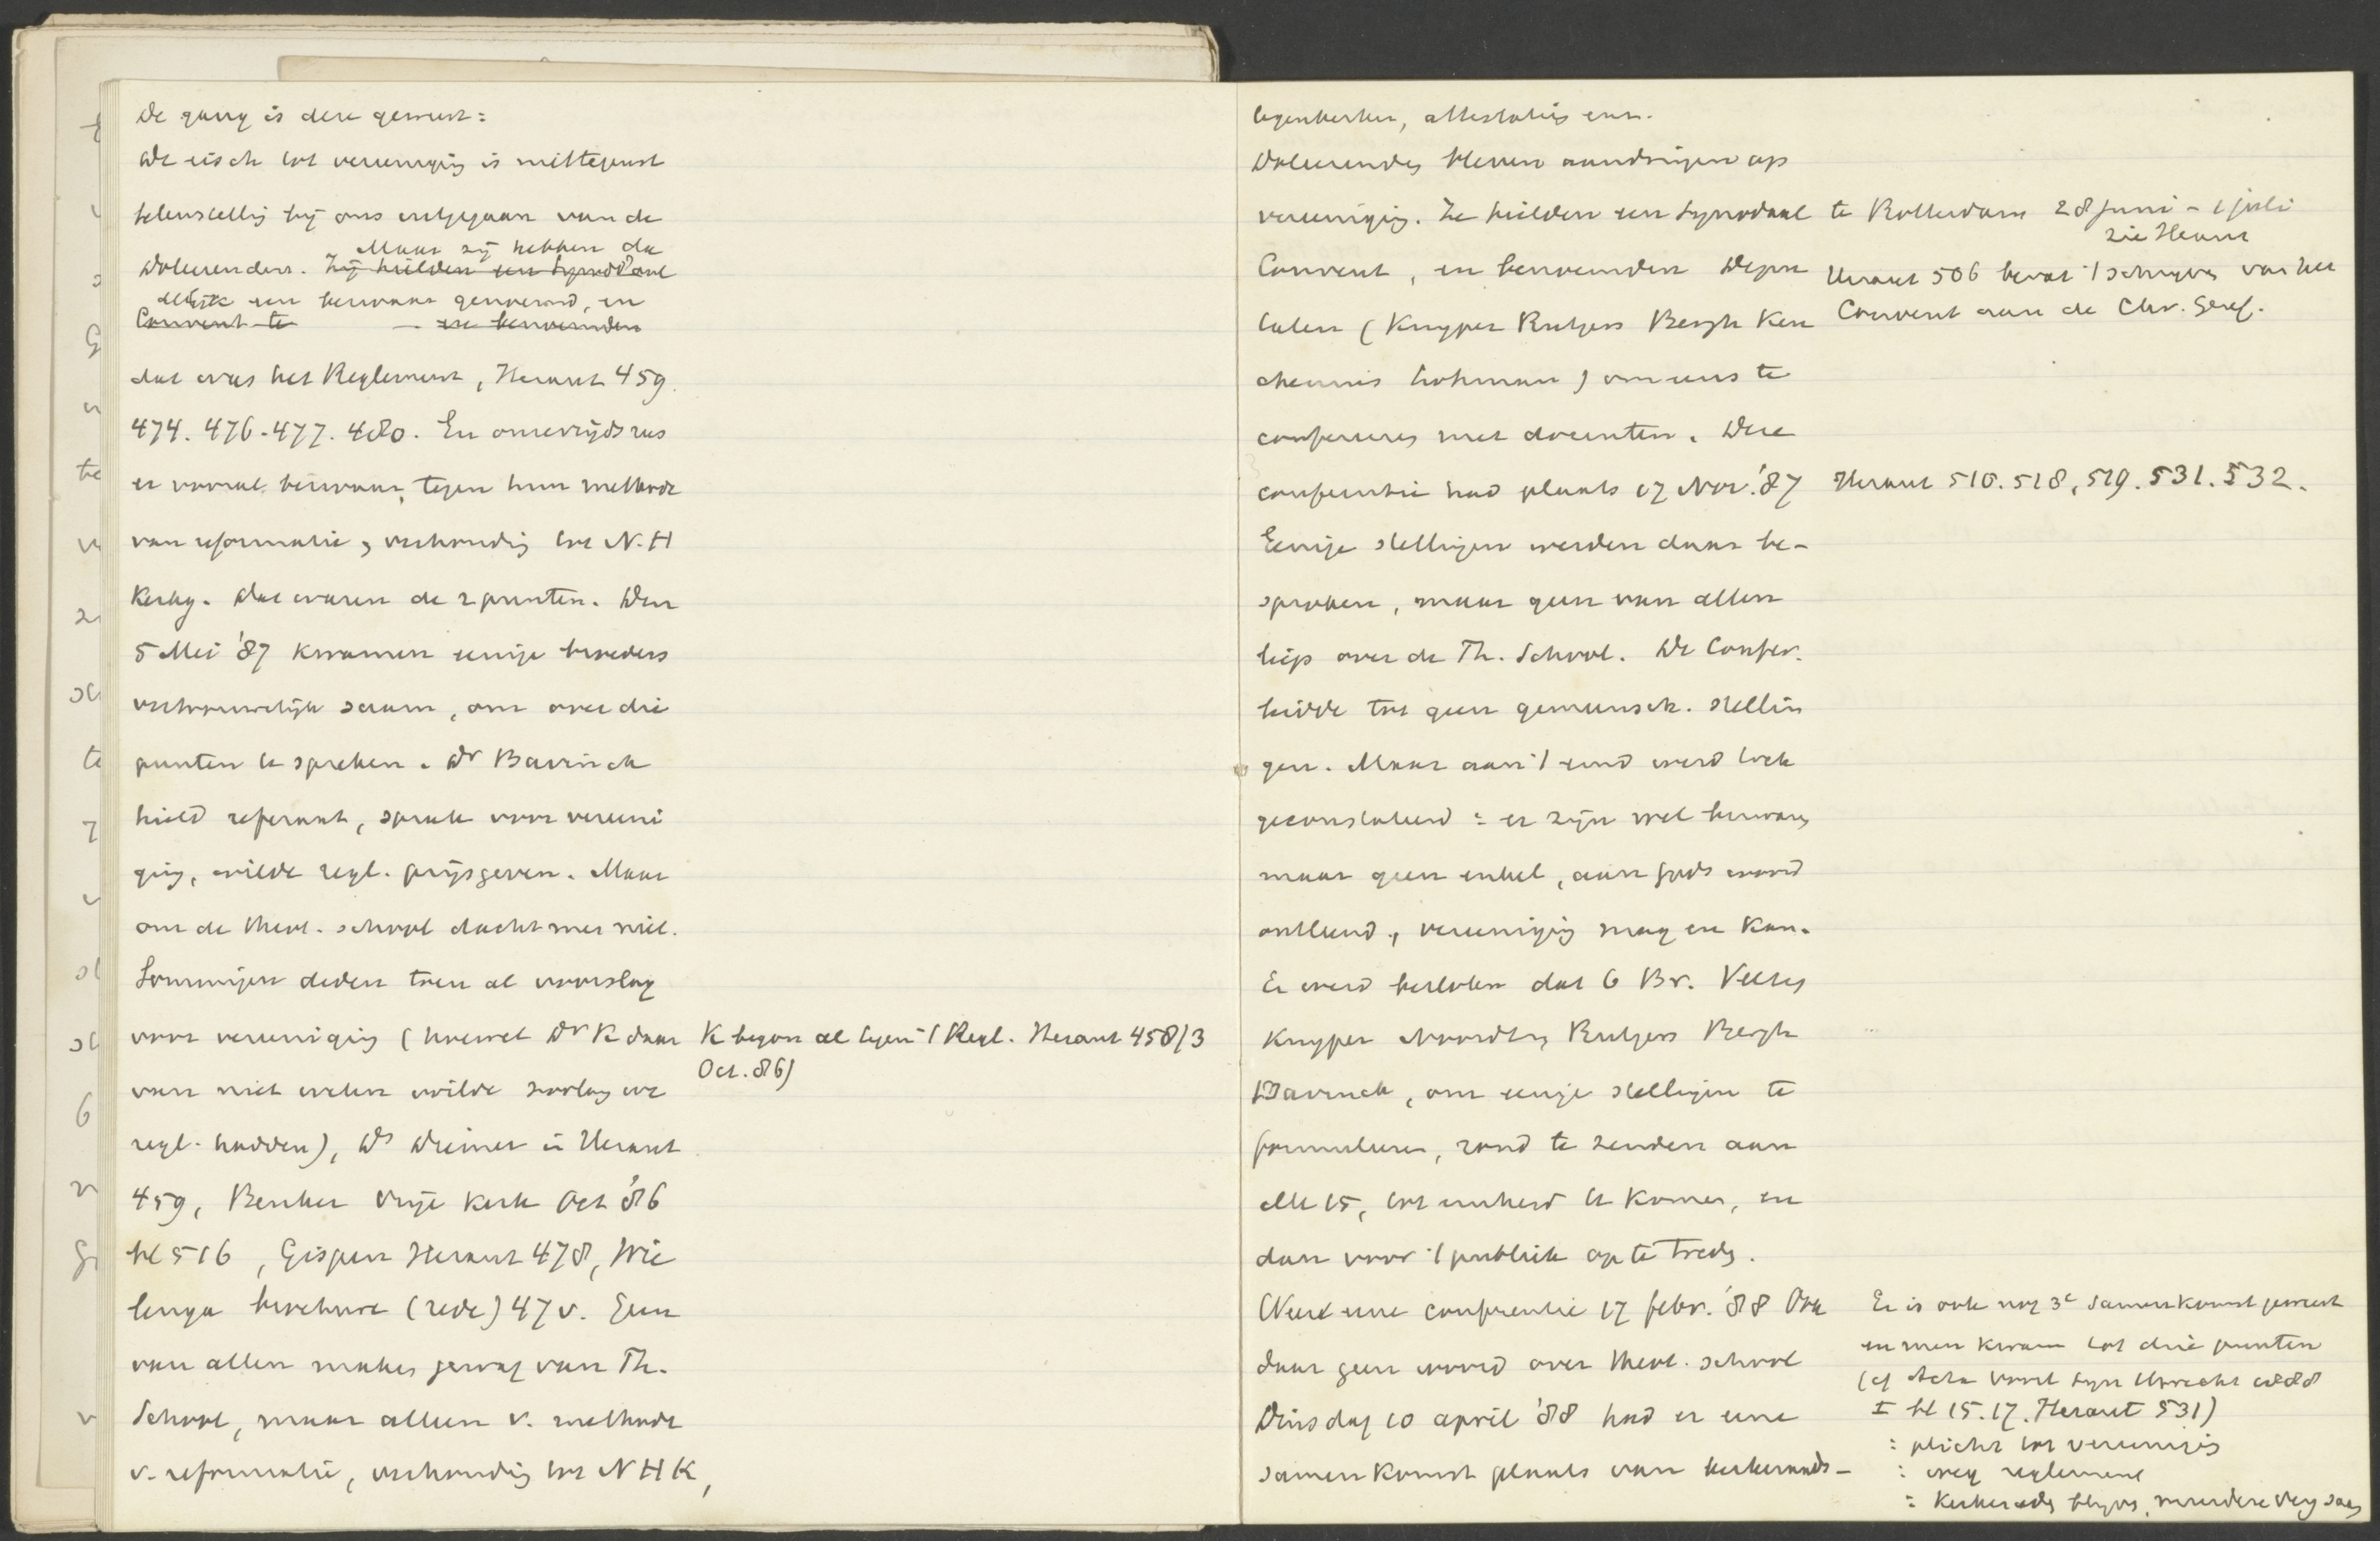 De gang is deze geweest:
De eisch tot vereeniging is
belangstelling bij ons uitgegaan van de
Maar zij hebben de
Doleerenden. Zij hielden een Synodaal
een bezwaar genoemd, en
Convent te — en benoemden
dat was het Reglement, Heraut 459.
474. 476-477. 480. En onzerzijds was
er vooral bezwaar, tegen hun methode
van reformatie, verhouding tot N.H
Kerkg. Dat waren de 2 punten. Den
5 Mei '87 kwamen eenige broeders
vertrouwelijk saam, om over die
punten te spreken. Dr Bavinck
hield referaat, sprak voor vereeni
ging, wilde regl. prijsgeven. Maar
om de theol. school dacht men niet.
Sommigen deden toen al voorslag
voor vereeniging (hoewel Dr K daar
van niet weten wilde zoolang we
regl. hadden), Ds Diemer in Heraut
459, Beuker Vrije Kerk Oct '86
bl 516, Gispen Heraut 478, Wie
lenga brochure (rede) 47 v. Geen
van allen maken gewag van Th.
School, maar alleen v. methode
v. reformatie, verhouding tot N H K,
K begon al tegen 't Regl. Heraut 458/3
Oct. 86)
legenkerken, attestaties enz.
Doleerenden bleven aandringen op
vereeniging. Ze hielden een Synodaal
Convent, en benoemden Depu
taten (Kuyper Rutgers Bergh Keu
chenius Lohman) om eens te
confereeren met docenten. Deze
conferentie had plaats 17 Nov. '87
Eenige stellingen werden daar be-
sproken, maar geen van allen
liep over de Th. School. De Confer.
leidde tot geen gemeensch. stellin
gen. Maar aan 't eind werd toch
geconstateerd: er zijn wel bezwaren
maar geen enkel, aan Gods woord
ontleend, vereeniging mag en kan.
Er werd besloten dat 6 Br. Velzen
Kuyper Noordtzij Rutgers Bergh
Bavinck, om eenige stellingen te
formuleren, rond te zenden aan
alle 15, tot eenheid te komen, en
dan voor 't publiek op te treden.
Weer eene conferentie 17 febr. '88 Ook
daar geen woord over theol. school
Dinsdag 10 april '88 had er eene
samenkomst plaats van kerkeraads-
te Rotterdam 28 juni - 1 juli
zie Heraut
Heraut 506 bevat 't schrijven van het
Convent aan de Chr. Geref.
Heraut 510. 518, 519. 531. 532.
Er is ook nog 3e samenkomst geweest
en men kwam tot drie punten
(cf Acta voorl Syn Utrecht 1888
I bl 15. 17. Heraut 531)
: plicht tot vereeniging
: weg reglement
: Kerkeraden meerdere verg